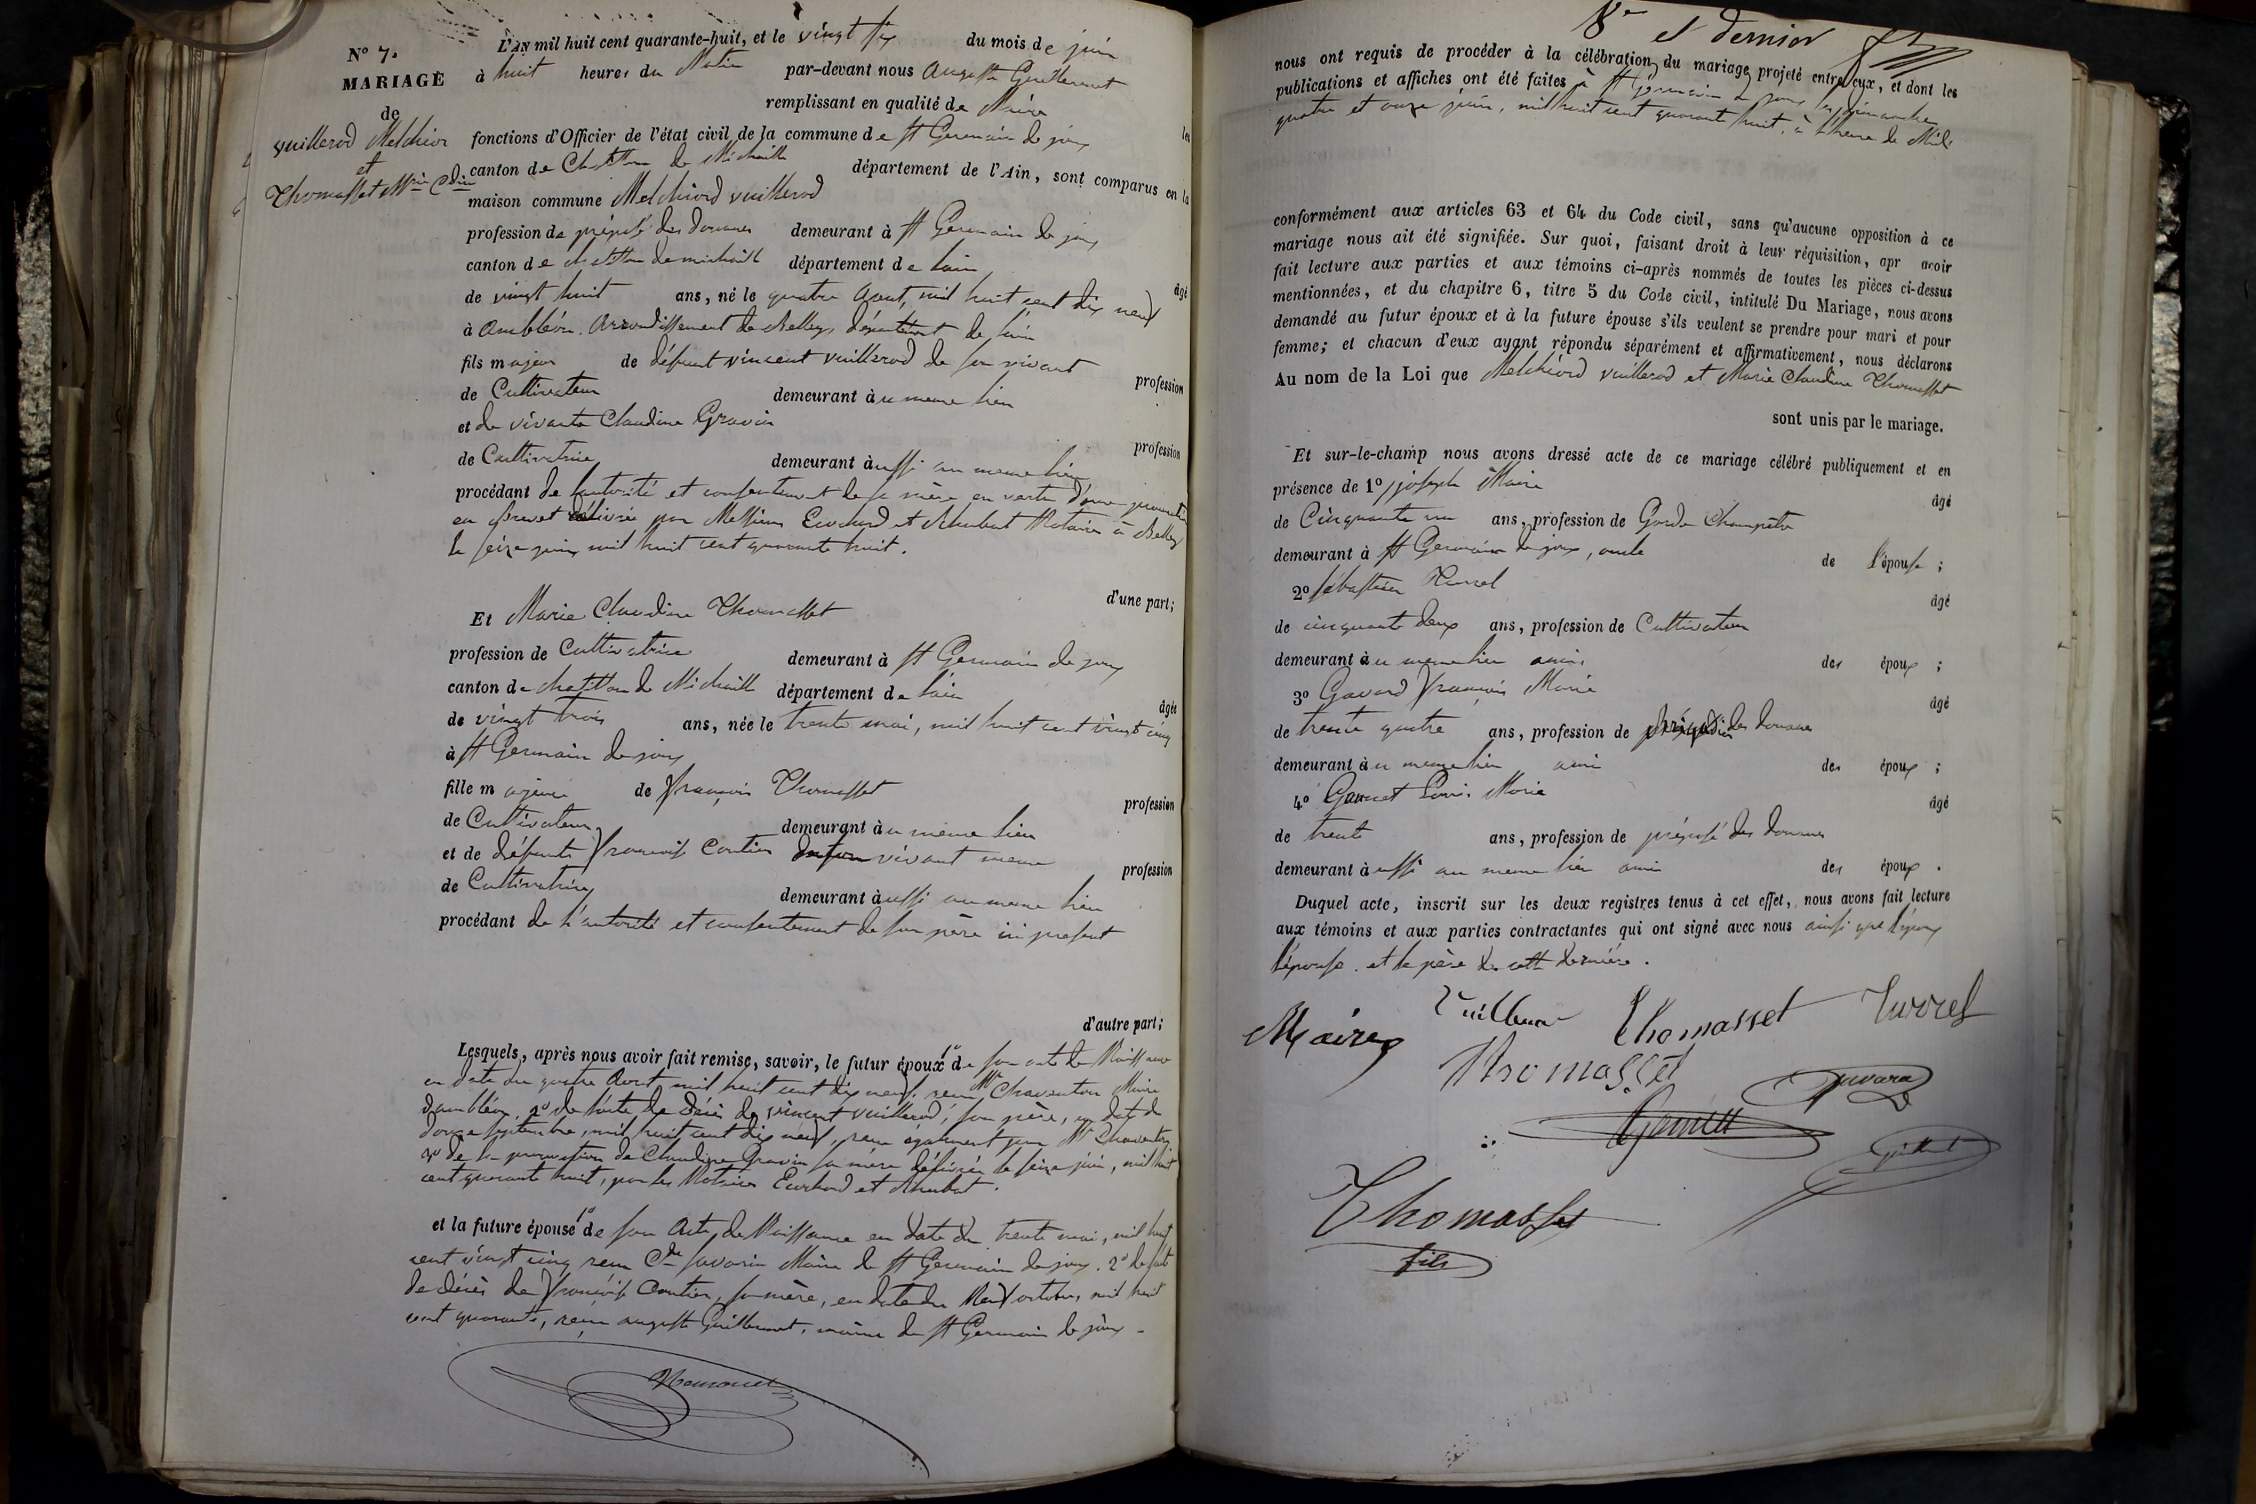 N° 7.
MARIAGE
de
Vuillerod Melchior
et
Thomasset Mie Cdine
L'AN mil huit cent quarante-huit, et le vingt six du mois de juin
à huit heures du Matin par-devant nous Auguste Guillermet
remplissant en qualité de Maire les
fonctions d'Officier de l'état civil de la commune de St Germain de joux
canton de Chatillon de Michaille département de l'Ain, sont comparus en la
maison commune Melchiord Vuillerod
profession de préposé des douanes demeurant à St Germain de joux
canton de chatillon de michaille département de l'ain âgé
de vingt huit ans, né le quatre Aout, mil huit cent dix neuf
à Ambléon. Arrondissement de Belley, département de l'ain
fils majeur de défunt vincent vuillerod de son vivant profession
de Cultivateur demeurant au meme lieu
et de vivante Claudine Gravin profession
de Cultivatrice demeurant aussi au meme lieu
procédant de l'autorité et consentement de sa mère en vertu d'une procuration
en Brevet délivrée par Messieurs et Notaires à Belley
le seize juin mil huit cent quarante huit.
d'une part;
Et Marie Claudine Thomasset
profession de Cultivatrice demeurant à St Germain de joux
canton de chatillon de Michaille département de l'ain âgée
de vingt trois ans, née le trente mai, mil huit cent vingt cinq
à St Germain de joux
fille majeure de françois Thomasset profession
de Cultivateur demeurant au même lieu
et de défunte françoise Coutier de son vivant meme profession
de Cultivatrice demeurant aussi au meme lieu
procédant de l'autorité et consentement de son père ici présent
d'autre part;
Lesquels, après nous avoir fait remise, savoir, le futur époux 1° de son acte de Naissance
en date du quatre Aout mil huit cent dix neuf. reçu Mr Chaventon Maire
d'ambléon, 2° de l'acte de décès de vincent vuillerod, son père, en date de
douze septembre, mil huit cent dix neuf, reçu également par Mr Chaventon
3° de la procuration de Claudine Gravin sa mère délivrée le seize juin, mil huit
cent quarante huit, par les Notaires et
et la future épouse 1° de son Acte de Naissance en date du trente mai, mil huit
cent vingt cinq reçu Cde Savarin Maire de St Germain de joux. 2° de l'acte
de décès de françoise Coutier, sa mère, en date du Neuf octobre, mil huit
cent quarante, reçu auguste Guillermet, maire de St Germain de joux -
8e et dernier
nous ont requis de procéder à la célébration du mariage projeté entre eux, et dont les
publications et affiches ont été faites à St Germain de joux les dimanches
quatre et onze juin, mil huit cent quarante huit, à l'heure de Midi
conformément aux articles 63 et 64 du Code civil, sans qu'aucune opposition à ce
mariage nous ait été signifiée. Sur quoi, faisant droit à leur réquisition, apr avoir
fait lecture aux parties et aux témoins ci-après nommés de toutes les pièces ci-dessus
mentionnées, et du chapitre 6, titre 5 du Code civil, intitulé Du Mariage, nous avons
demandé au futur époux et à la future épouse s'ils veulent se prendre pour mari et pour
femme; et chacun d'eux ayant répondu séparément et affirmativement, nous déclarons
Au nom de la Loi que Melchiord vuillerod et Marie Claudine Thomasset
sont unis par le mariage.
Et sur-le-champ nous avons dressé acte de ce mariage célébré publiquement et en
présence de 1° joseph Maire âgé
de Cinquante un ans, profession de Garde Champêtre
demeurant à St Germain de joux, oncle de l'épouse;
2° sébastien Turrel âgé
de cinquante deux ans, profession de Cultivateur
demeurant au meme lieu amis des époux;
3° Gavard françois Marie âgé
de trente quatre ans, profession de des douanes
demeurant au meme lieu ami des époux;
4° Louis Marie âgé
de trente ans, profession de préposé des douanes
demeurant aussi au meme lieu ami des époux.
Duquel acte, inscrit sur les deux registres tenus à cet effet, nous avons fait lecture
aux témoins et aux parties contractantes qui ont signé avec nous ainsi que l'époux
l'épouse. et le père de cette dernière.
Maire Thomasset Turrel
Thomasset
Thomasset
fils